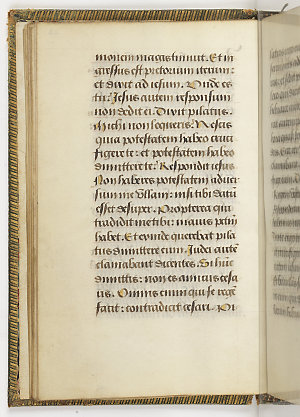 monem magis timuit. Et in
gressus est pretorium iterum:
et dixit ad iesum. Unde es
tu: Jesus autem responsum
non dedit ei. Dixit pilatus.
Michi non loqueris. Nescis
quia potestatem habeo cruci
figere te: et potestatem habeo
dimittere te: Respondit iesus.
Non haberes potestatem aduer
sum me ullam: nisi tibi datū
esset desuper. Propterea qui
tradidit me tibi: maius pctm̄
habet. Et exinde querebat pila
tus dimittere eum. Judei autē
clamabant dicentes. Si hūc
dimittis: non es amicus cesa
ris. Omnis enim qui se regē
facit: contradicit cesari.